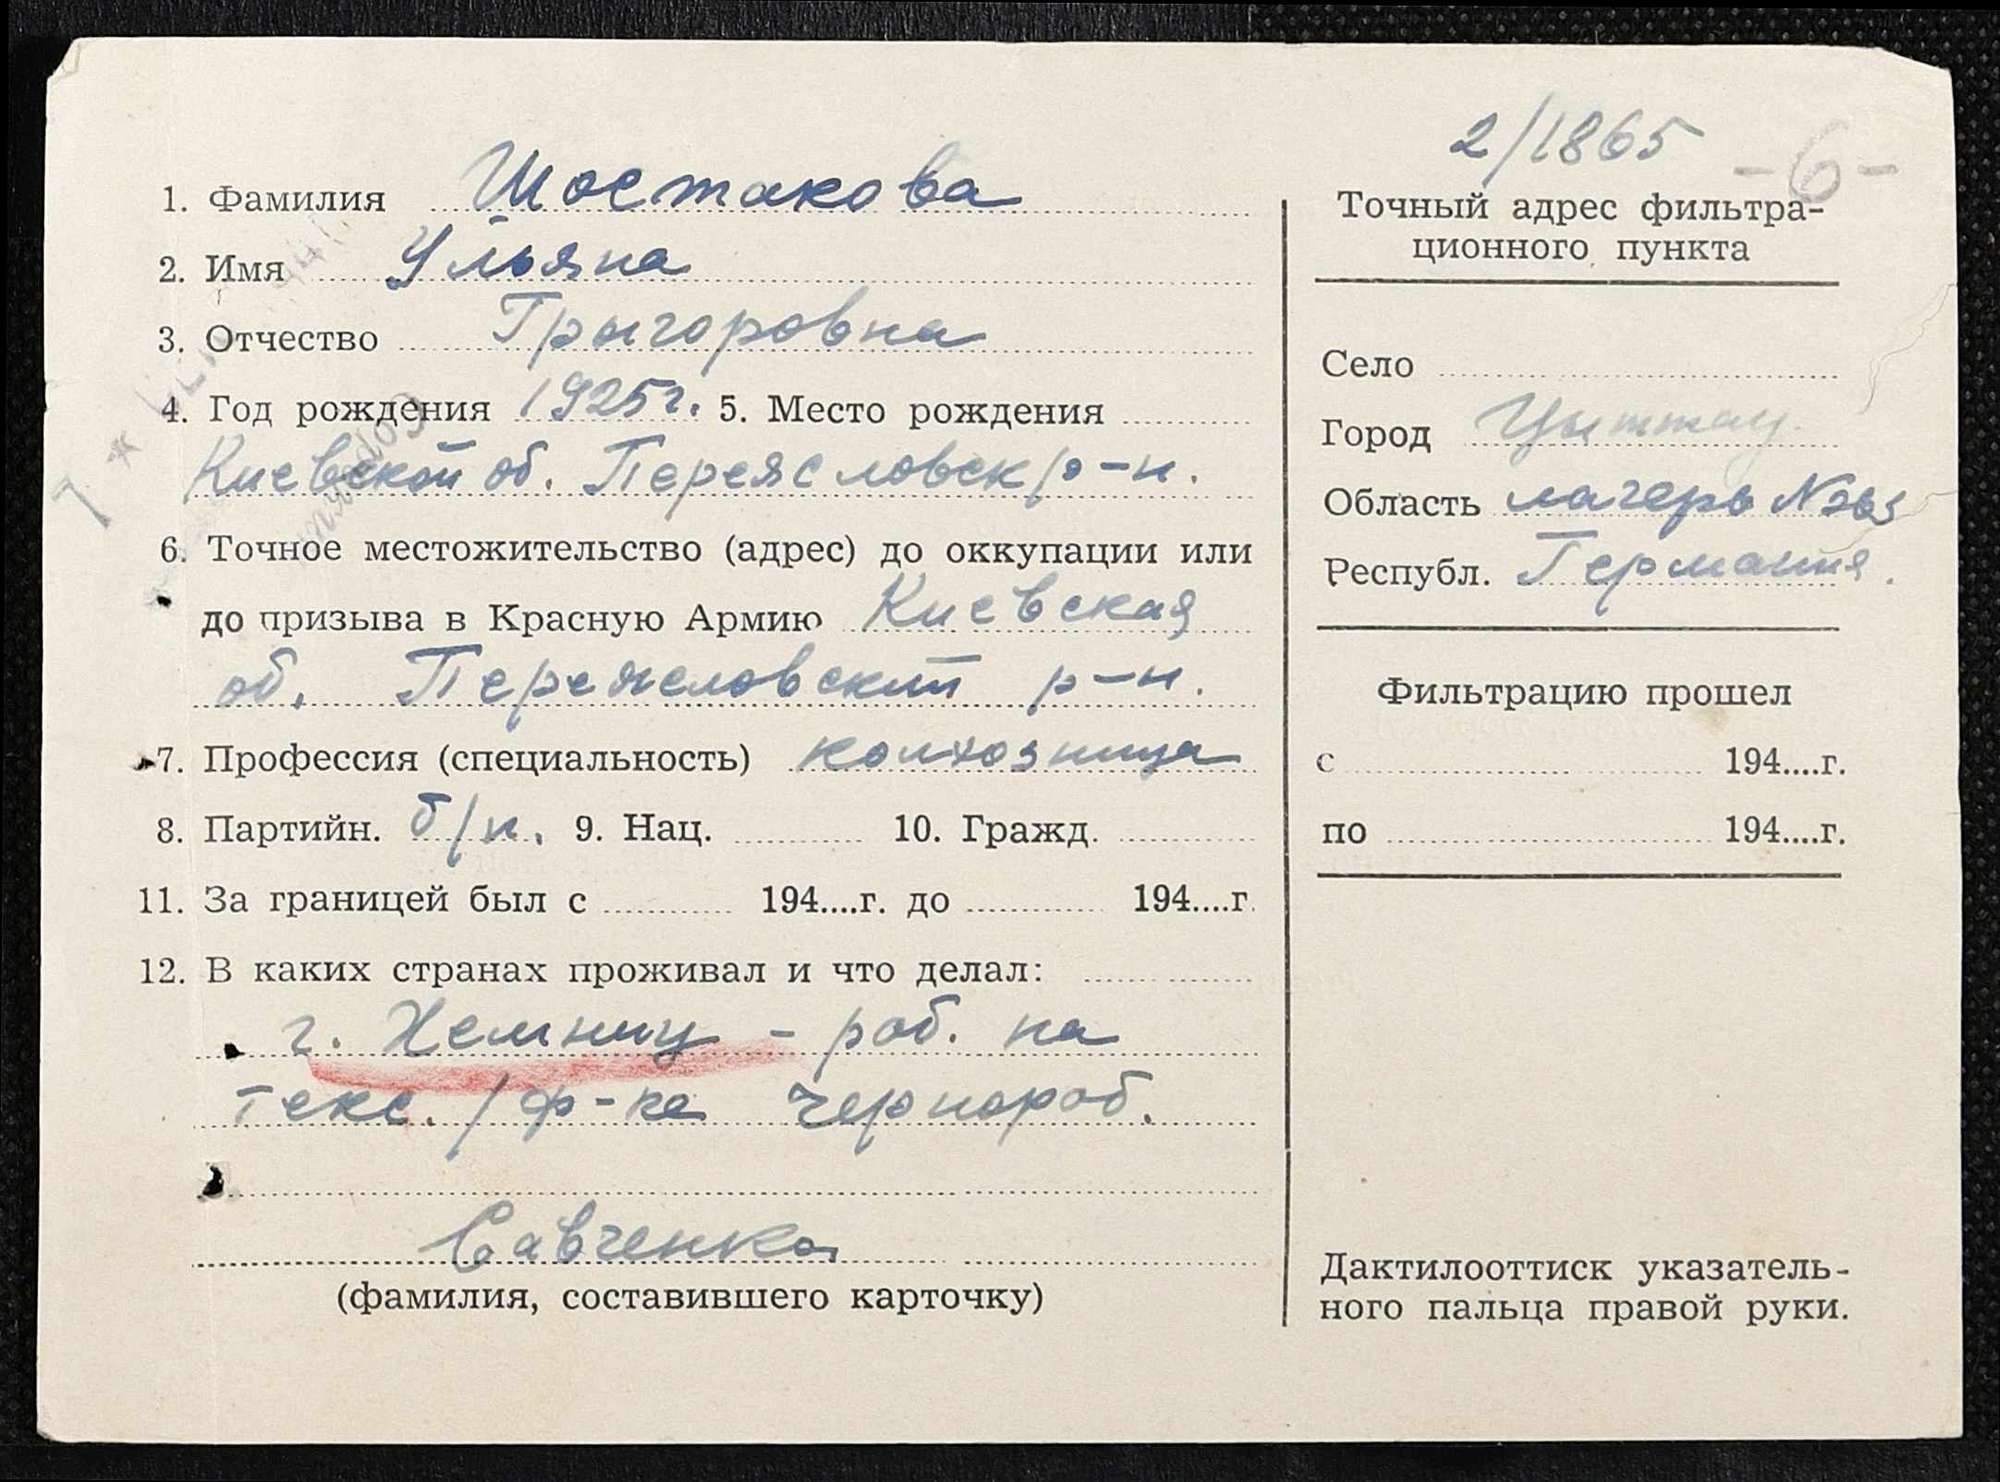 2/1865
-6-
1. Фамилия Шостакова
2. Имя Ульяна
3. Отчество Грыгоровна
4. Год рождения 1925г. 5. Место рождения
Киевской об. Переясловск р-н.
6. Точное местожительство (адрес) до оккупации или
до призыва в Красную Армию Киевская
об. Переясловский р-н.
7. Профессия (специальность) колхозница
8. Партийн. б/п. 9. Нац. 10. Гражд.
11. За границей был с 194....г. до 194....г.
12. В каких странах проживал и что делал:
г. Хемниц - раб. на
текс. / ф-ке чернораб.
Савченко
(фамилия, составившего карточку)
Точный адрес фильтра-
ционного пункта
Село
Город Цыттау.
Область лагерь №
Республ. Германия.
Фильтрацию прошел
с 194....г.
по 194....г.
Дактилооттиск указатель-
ного пальца правой руки.